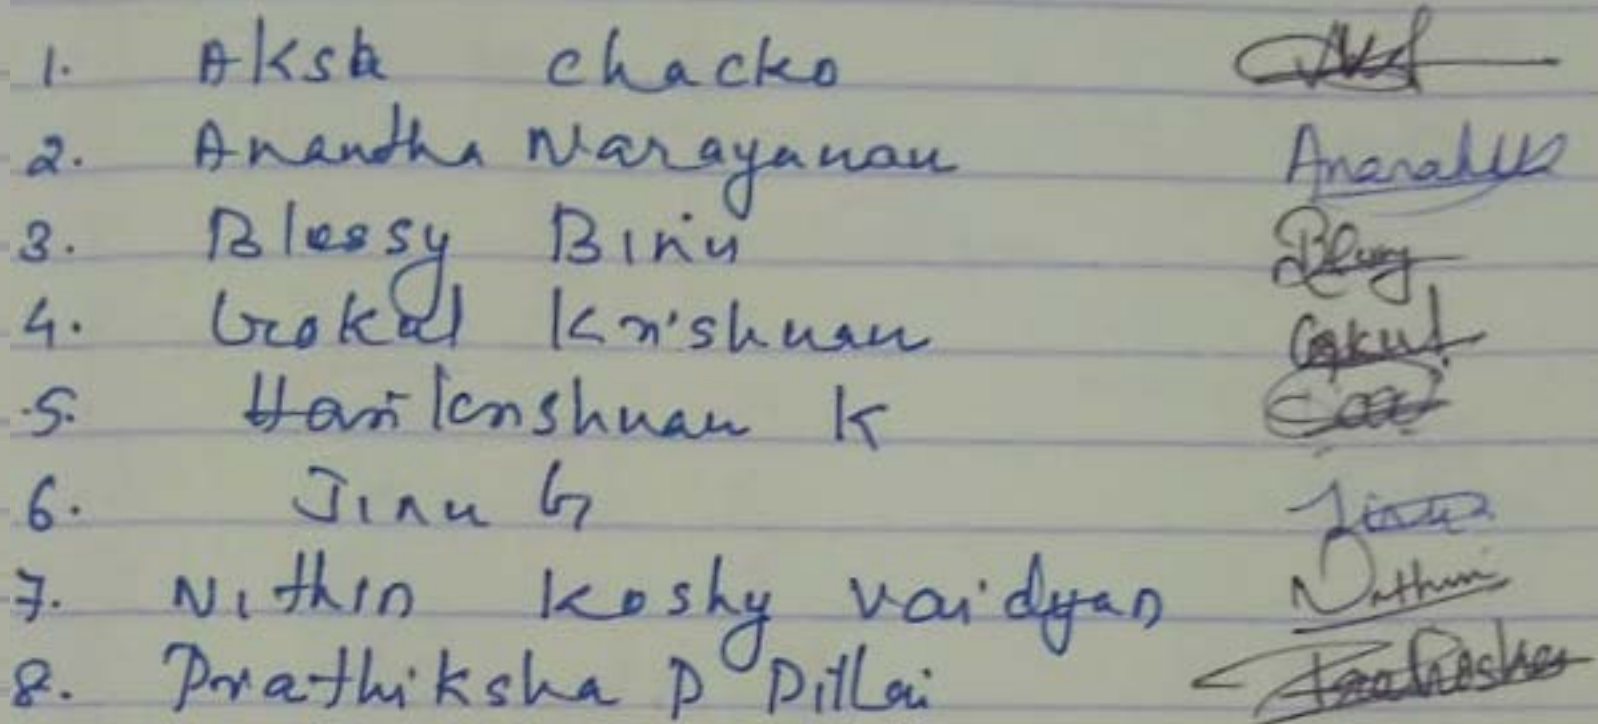 1. Aksa Chacko
2. Anantha Narayanan Ananthu
3. Blessy Binu Blessy
4. Gokul Krishnan Gokul
5. Hari Krishnan K
6. Jinu G Jinu
7. Nithin Koshy Vaidyan Nithin
8. Prathiksha P Pillai